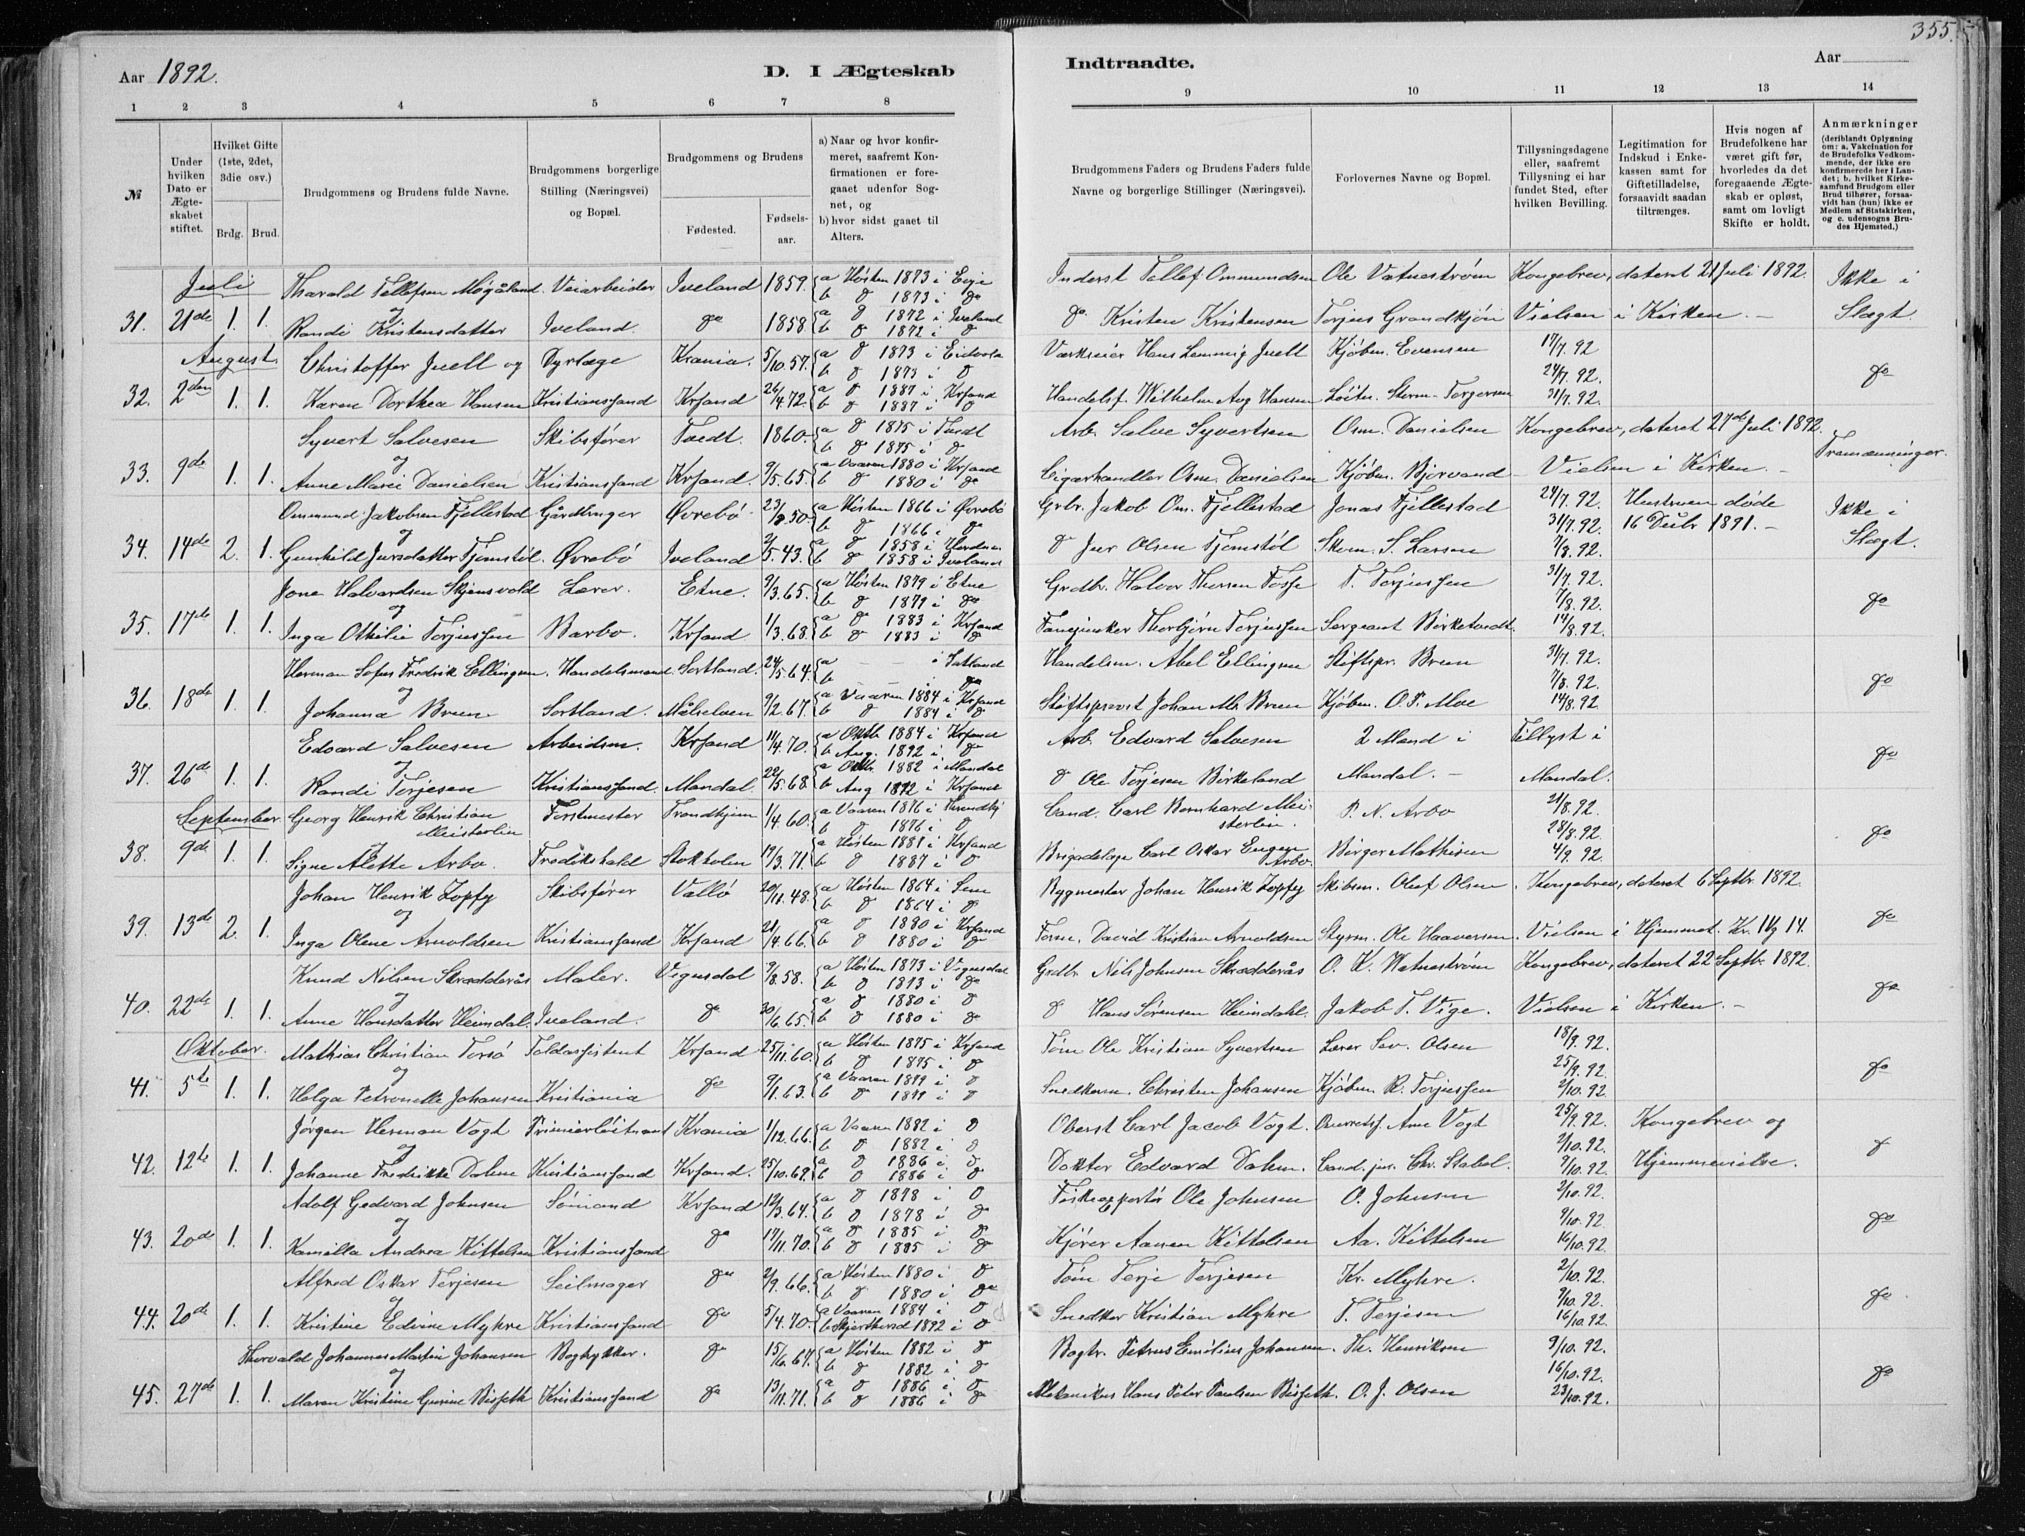 355.
Aar 1892.
D. I Ægteskab
Indtraadte.
Aar
1 2 3 4 5 6 7 8 9 10 11 12 13 14
№
Under hvilken Dato er Ægteskabet stiftet.
Hvilket Gifte (1ste, 2det, 3die osv.)
Brdg. Brud.
Brudgommens og Brudens fulde Navne.
Brudgommens borgerlige Stilling (Næringsvei) og Bopæl.
Brudgommens og Brudens
Fødested.
Fødselsaar.
a) Naar og hvor konfirmeret, saafremt Konfirmationen er foregaaet udenfor Sognet, og
b) hvor sidst gaaet til Alters.
Brudgommens Faders og Brudens Faders fulde Navne og borgerlige Stillinger (Næringsvei).
Forlovernes Navne og Bopæl.
Tillysningsdagene eller, saafremt Tillysning ei har fundet Sted, efter hvilken Bevilling.
Legitimation for Indskud i Enkekassen samt for Giftetilladelse, forsaavidt saadan tiltrænges.
Hvis nogen af Brudefolkene har været gift før, hvorledes da det foregaaende Ægteskab er opløst, samt om lovligt Skifte er holdt.
Anmærkninger (deriblandt Oplysning om: a. Vakcination for de Brudefolks Vedkommende, der ikke ere konfirmerede her i Landet; b. hvilket Kirkesamfund Brudgom eller Brud tilhører, forsaavidt han (hun) ikke er Medlem af Statskirken, og c. udensogns Brudes Hjemsted.)
Juli Tharald Tellefsen Møgåland Veiarbeider Iveland 1859. a Høsten 1873 i Evje b d 1873 i do Inderst Tellef Ommundsen Ole Vatnestrøm Kongebrev, dateret 21 Juli 1892. Ikke i
31. 21de 1. 1. og Randi Kristensdatter Iveland. do 1858 a d 1872 i Iveland b d 1872 i d do Kristen Kristensen Torjus Grandkjøn Vielsen i Kirken. Slægt.
August Christoffer Juell og Dyrlæge Krania. 5/10.57. a d 1873 i Eidvold b d 1873 i d Værkseier Hans Lemmig Juell Kjøbm. Evensen 17/7.92 24/7.92.
32. 2den 1. 1. Karen Dorthea Hansen Kristianssand Krsand 26/4.72. a d 1887 i Krsand b d 1887 i d Handelsf. Wilhelm Aug Hansen Løitn. Storm-Torgersen 31/7.92. do
Syvert Salvesen Skibsfører Tvedt. 1860. a d 1875 i Tvedt b d 1875 i d Arb. Salve Syvertsen Osm. Danielsen Kongebrev, dateret 27de Juli 1892.
33. 9de 1. 1. og Anne Marie Danielsen Kristianssand Krsand. 9/5.65. a Vaaren 1880 i Krsand b d 1880 i do Cigarhandler Osm. Danielsen Kjøbm. Bjorvand Vielsen i Kirken.
Ommund Jakobsen Fjellestad Gårdbruger Øvrebø. 23/8.50. a Høsten 1866 i Øvrebø b d 1866 i do Grbr. Jakob Om. Fjellestad Jonas Fjellestad 24/7.92. 31/7.92. Hustruen døde 16 Decbr 1891. Ikke i
34. 14de 2. 1. og Gunhild Jursdatter Tjomstøl. Øvrebø Iveland 2/5.43. a d 1858 i b d 1858 i Iveland d Juer Olsen Tjomstøl Skom. S. Larsen 7/8.92. Slægt.
Jone Halvardsen Skjensvold Lærer. Etne. 9/3.65. a Høsten 1879 i Etne b d 1879 i do Grdbr. Halvor Thorsen Fosse T. Torjussen 31/7.92. 7/8.92. do
35. 17de 1. 1. og Inga Othilie Torjussen Barbo. Krsand 1/3.68. a d 1883 i Krsand b d 1883 i do Fanejunker Thorbjørn Torjussen Sergeant Birketvedt. 14/8.92.
Herman Sofus Fredrik Ellingsen. Handelsmand. Sortland. 24/5.64. a i Sortland b do Handelsm. Abel Ellingsen Stiftspr. Bruun 31/7.92. 7/8.92.
36. 18de 1. 1. og Johanna Bruun. Sortland. Målselven 9/2.67. a Vaaren 1884 i Krsand b d 1884 i d Stiftsprovst Johan M. Bruun Kjøbm. O. P. Moe 14/8.92 do
Edvard Salvesen Arbeidsm. Krsand 11/4.70. a Oktb. 1884 i Krsand b Aug. 1892 i do Arb. Edvard Salvesen 2 Mænd i Tillyst i
37. 26de 1. 1. og Randi Torjesen Kristianssand. Mandal. 22/5.68. a Oktbr. 1882 i Mandal b Aug 1892 i Krsand d Ole Torjesen Birkeland Mandal. Mandal. do
September. Georg Henrik Christian Meisterlin Forstmester Trondhjem 1/4.60. a Vaaren 1876 i Trondhj b d 1876 i d Cand. Carl Bernhard Meisterlin. P. N. Arbo 21/8.92. 28/8.92.
38. 9de 1. 1. og Signe Alette Arbo. Fredrikshald Stokholm 17/3.71. a Høsten 1881 i Krsand b d 1887 i d Brigadelæge Carl Oskar Eugen Arbo. Birger Mathisen 4/9.92. do
Johan Henrik Zopfy Skibsfører Vallø 20/11.48. a Høsten 1864 i Sem b d 1864 i d Bygmester Johan Henrik Zopfy Skibsm. Olaf Olsen. Kongebrev, dateret 6 Septbr. 1892.
39. 13de 2. 1. og Inga Olene Arnoldsen Kristianssand Krsand 21/4.66. a d 1880 i Krsand b d 1880 i do David Kristian Arnoldsen Styrm. Ole Haaversen. Vielsen i Hjemmet. do
Knud Nilsen Skrædderås Maler. Vigusdal 9/8.58. a Høsten 1873 i Vigusdal b d 1873 i do Grdbr. Nils Johnsen Skrædderås O. K. Watnestrøm Kongebrev, dateret 22 Septbr. 1892.
40. 22de 1. 1. og Anne Hansdatter Heimdal. Iveland. do 20/6.65. a d 1880 i d b d 1880 i do d Hans Sørensen Heimdahl. Jakob T. Vige. Vielsen i Kirken. do
Oktober. Mathias Christian Torsø Toldassistent Krsand 25/11.60. a Høsten 1875 i Krsand b d 1875 i d Tøm Ole Kristian Syvertsen Lærer Sev. Olsen 18/9.92. 25/9.92.
41. 5te 1. 1. og Helga Petronelle Johansen Kristiania do 9/1.63. a Vaaren 1879 i d b d 1879 i d Snedkerm. Christen Johansen Kjøbm. R. Torjussen 2/10.92. do
Jørgen Herman Vogt Primierløitnant Krania 1/12.66. a Vaaren 1882 i d b d 1882 i d Oberst Carl Jacob Vogt. Overretsf. Arne Vogt 25/9.92. 2/10.92. Kongebrev og
42. 12te 1. 1. og Johanne Fredrikke Dahm Kristianssand. Krsand. 25/10.68. a d 1886 i d b d 1886 i do Doktor Edvard Dahm. Cand. jur. Chr. Stabel. 9/10.92. Hjemmevielse. d
Adolf Gedvard Johnsen Sømand Krsand 12/3.64. a d 1878 i d b d 1878 i do Fiskexportør Ole Johnsen O. Johnsen 2/10.92. 9/10.92
43. 20de 1. 1. og Kamilla Andrea Kittelsen Kristianssand do 17/11.70. a d 1885 i d b d 1885 i do Kjører Aanen Kittelsen Aa. Kittelsen 16/10.92. do
Alfred Oskar Terjesen Seilmager do 2/9.66. a Høsten 1880 i d b d 1880 i do Tøm Terje Terjesen Kr. Myhre. 2/10.92. 9/10.92.
44. 20de 1. 1. og Kristine Edvine Myhre Kristianssand do 5/4.70. a Vaaren 1884 i d b Skjærthorsd 1892 i d Snedker Kristian Myhre T. Terjesen 16/10.92. do
Thorvald Johannes Martin Johansen Bogtykker. do 15/6.67. a Høsten 1882 i d b d 1882 i d Bogtr. Petrus Emilius Johansen. Th. Henriksen 9/10.92. 16/10.92.
45. 27de 1. 1. og Maren Kristine Gurine Bisseth Kristianssand do 13/11.71. a d 1886 i d b d 1886 i do Mekaniker Hans Peter Paulsen Bisseth. O. J. Olsen 23/10.92. do